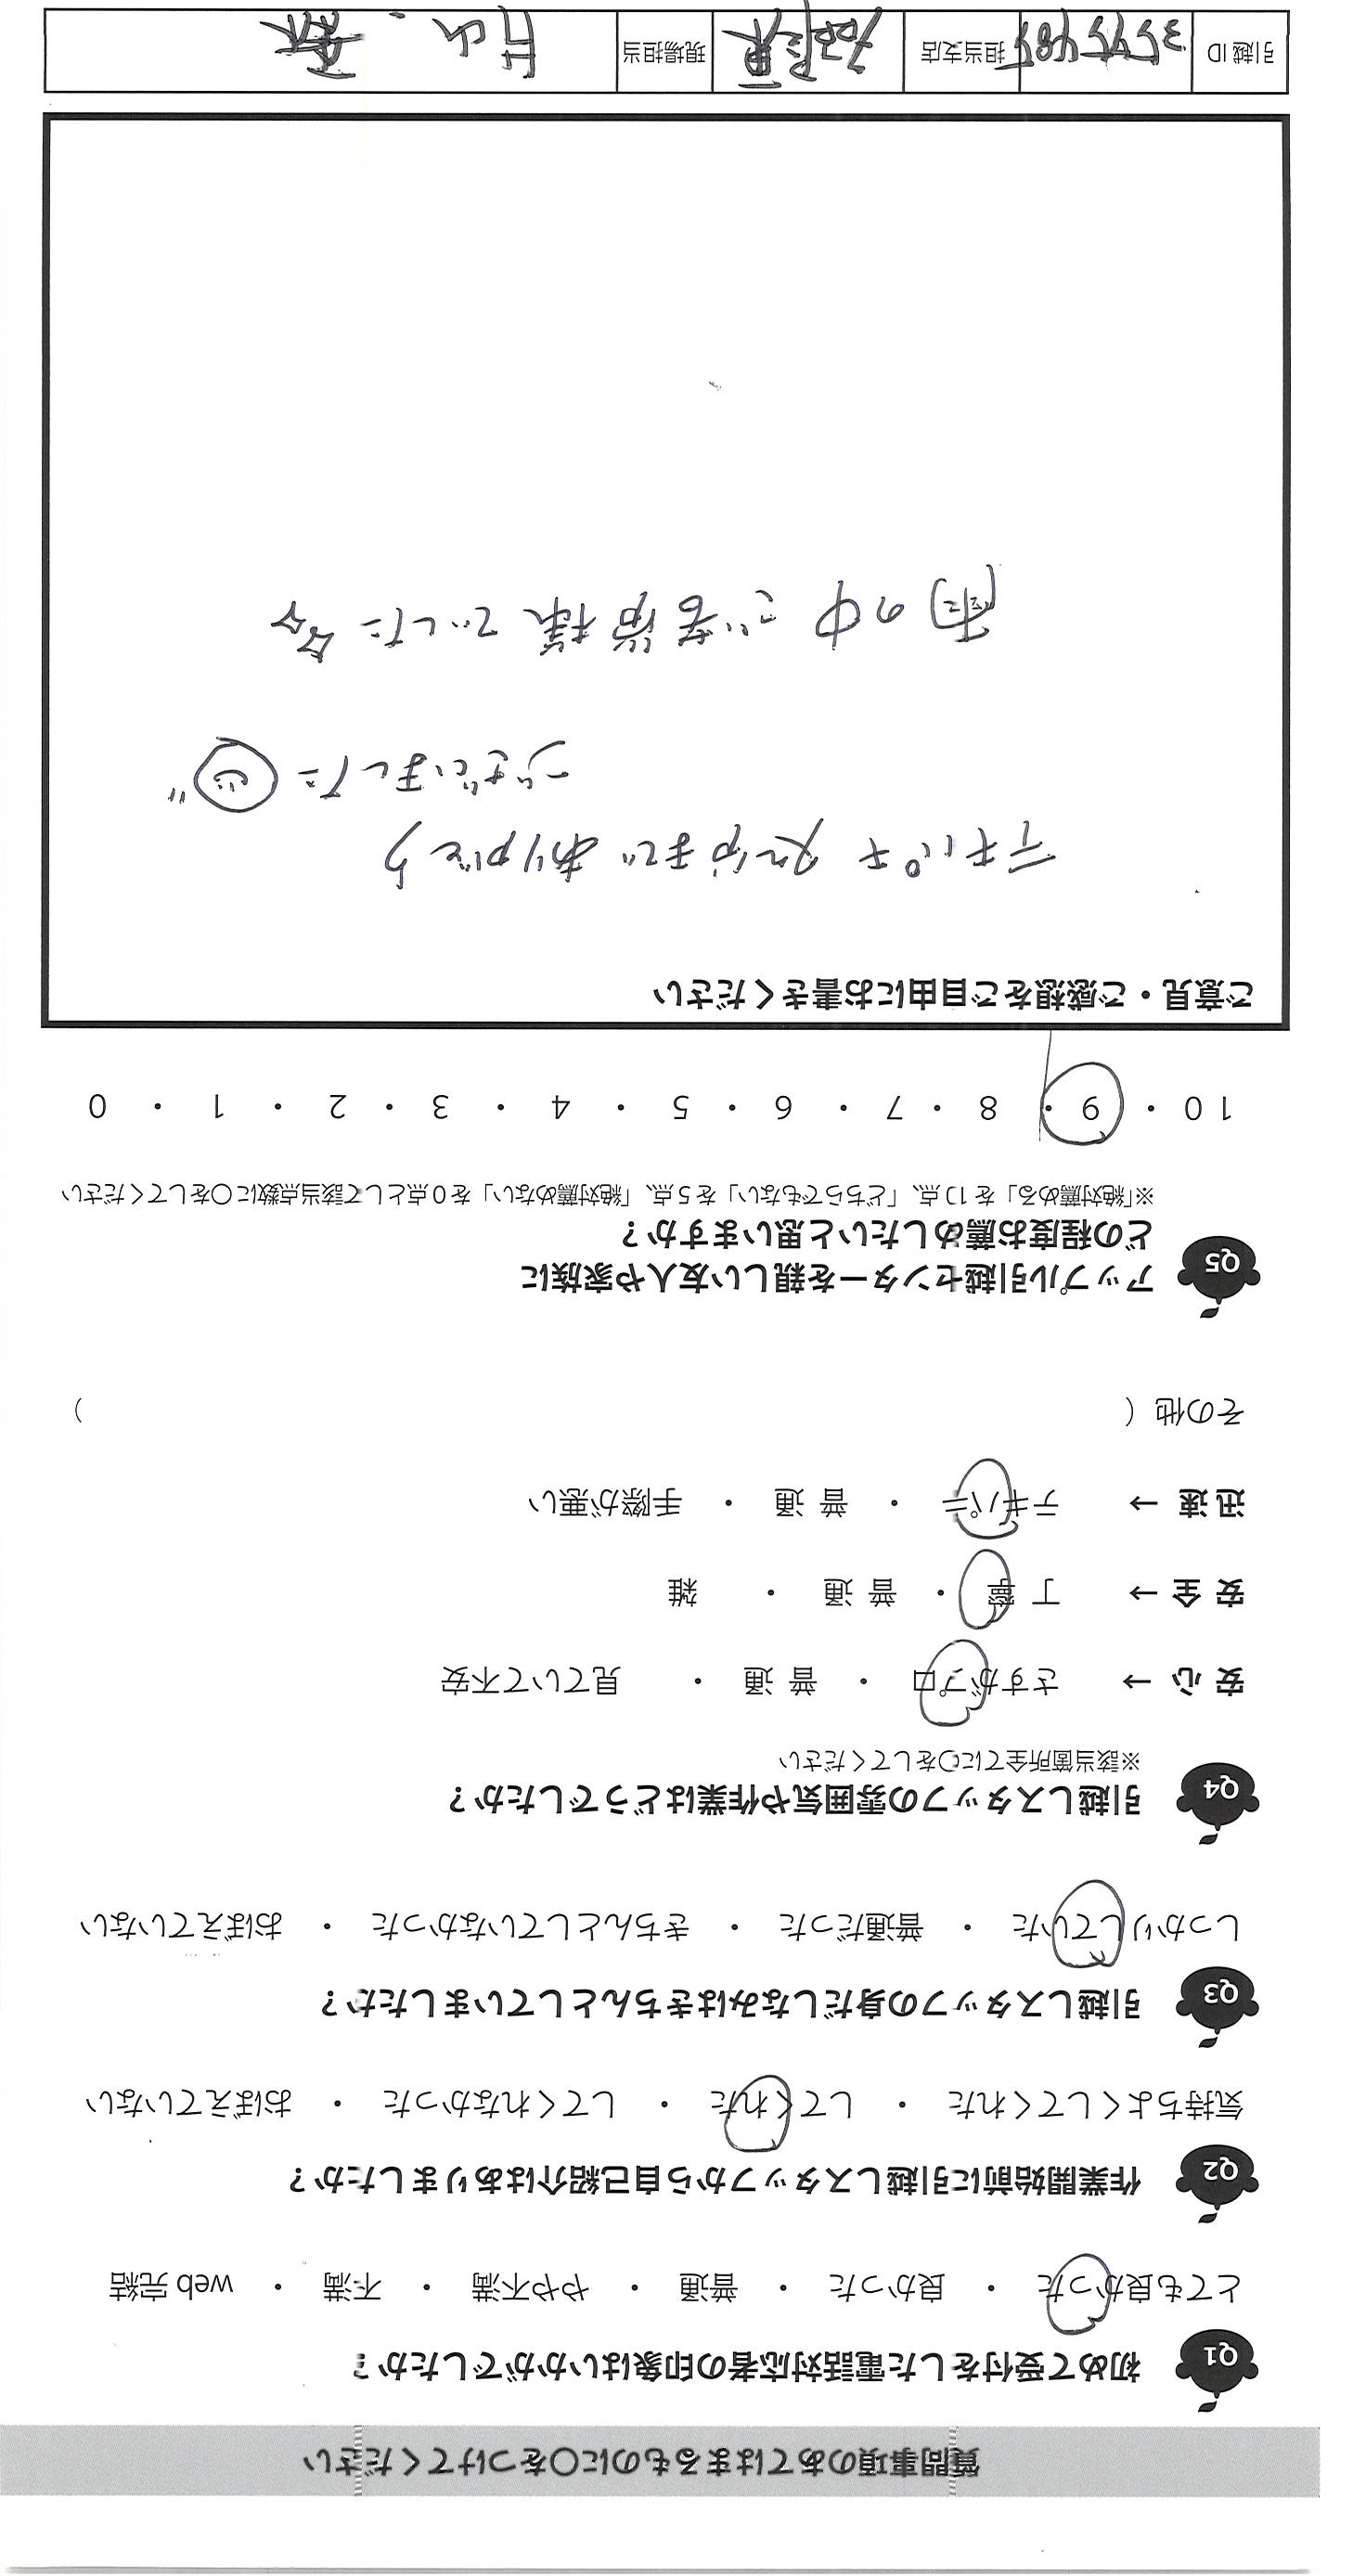 質問事項のあてはまるものに○をつけてください
Q1 初めて受付をした電話対応者の印象はいかがでしたか？
とても良かった ・ 良かった ・ 普通 ・ やや不満 ・ 不満 ・ web 完結
Q2 作業開始前に引越しスタッフから自己紹介はありましたか？
気持ちよくしてくれた ・ してくれた ・ してくれなかった ・ おぼえていない
Q3 引越しスタッフの身だしなみはきちんとしていましたか？
しっかりしていた ・ 普通だった ・ きちんとしていなかった ・ おぼえていない
Q4 引越しスタッフの雰囲気や作業はどうでしたか？
※該当箇所全てに○をしてください
安 心 → さすがプロ ・ 普 通 ・ 見ていて不安
安 全 → 丁 寧 ・ 普 通 ・ 雑
迅 速 → テキパキ ・ 普 通 ・ 手際が悪い
その他（ ）
Q5 アップル引越センターを親しい友人や家族に
どの程度お薦めしたいと思いますか？
※「絶対薦める」を 10 点、「どちらでもない」を 5 点、「絶対薦めない」を 0 点として該当点数に○をしてください
10 ・ 9 ・ 8 ・ 7 ・ 6 ・ 5 ・ 4 ・ 3 ・ 2 ・ 1 ・ 0
ご意見・ご感想をご自由にお書きください
テキパキ 夕方まで ありがとう
ございました
雨の中 ご苦労様でした
引越 ID 3575485 担当支店 現場担当 片山 ・ 森